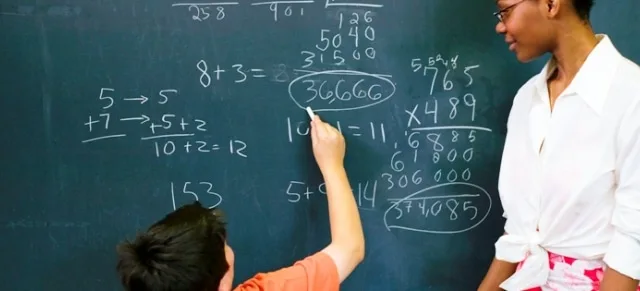 258
901
126
5040
31500
36,666
8+3=
5 → 5
+7 → +5+2
10+2=12
= 11
153
5+ =14
765
×489
6885
306000
374,085